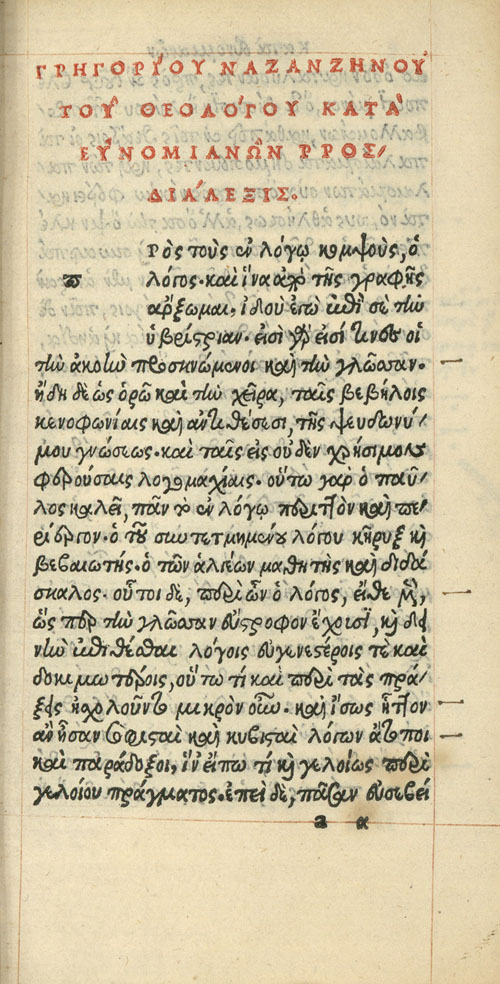 ΓΡΗΓΟΡΙΟΥ ΝΑΖΑΝΖΗΝΟΥ͂
ΤΟΥ͂ ΘΕΟΛΌΓΟΥ ΚΑΤᾺ
ΕΥ̓ΝΟΜΙΑΝΩ͂Ν ΠΡΟΣ/
ΔΙΆΛΕΞΙΣ.
Ρὸς τοὺς ἐν λόγῳ κομψοὺς, ὁ
π λόγος. καὶ ἵνα ἀπὸ τῆς γραφῆς
ἄρξωμαι, ἰδου ἐγὼ ἐπὶ σὲ τὴν
ὑβρίστριαν. εἰσὶ γὰρ εἰσί τινες οἱ
τὴν ἀκοὴν προσκνώμενοι καὶ τὴν γλῶσσαν.
ἤδη δὲ ὡς ὁρῶ καὶ τὴν χεῖρα, ταῖς βεβήλοις
κενοφωνίαις καὶ ἀντιθέσεσι, τῆς ψευδωνύ/
μου γνώσεως. καὶ ταῖς εἰς οὐδὲν χρήσιμον
φερούσαις λογομαχίαις. οὕτω γαρ ὁ παῦ/
λος καλεῖ, πᾶν τὸ ἐν λόγῳ περιττὸν καὶ πε/
ρίεργον. ὁ τοῦ συντετμημένου λόγου κῆρυξ καὶ
βεβαιωτής. ὁ τῶν ἁλιέων μαθητὴς καὶ διδά
σκαλος. οὗτοι δὲ, περὶ ὧν ὁ λόγος, εἴθε μὲν,
ὥς περ τὴν γλῶσσαν εὔστροφον ἔχουσι, καὶ δει
νὴν ἐπιθέσθαι λόγοις εὐγενεστέροις τὲ καὶ
δοκιμωτέροις, οὕτω τί καὶ περὶ τὰς πρά/
ξεις ἠσχολοῦντο μικρὸν γοῦν. καὶ ἴσως ἧττον
ἂν ἦσαν σοφισταὶ καὶ κυβισταὶ λόγων ἄτοποι
καὶ παράδοξοι, ἵν' εἴπω τί καὶ γελοίως περὶ
γελοίου πράγματος. ἐπεὶ δὲ, πᾶσαν εὐσεβεί
a α